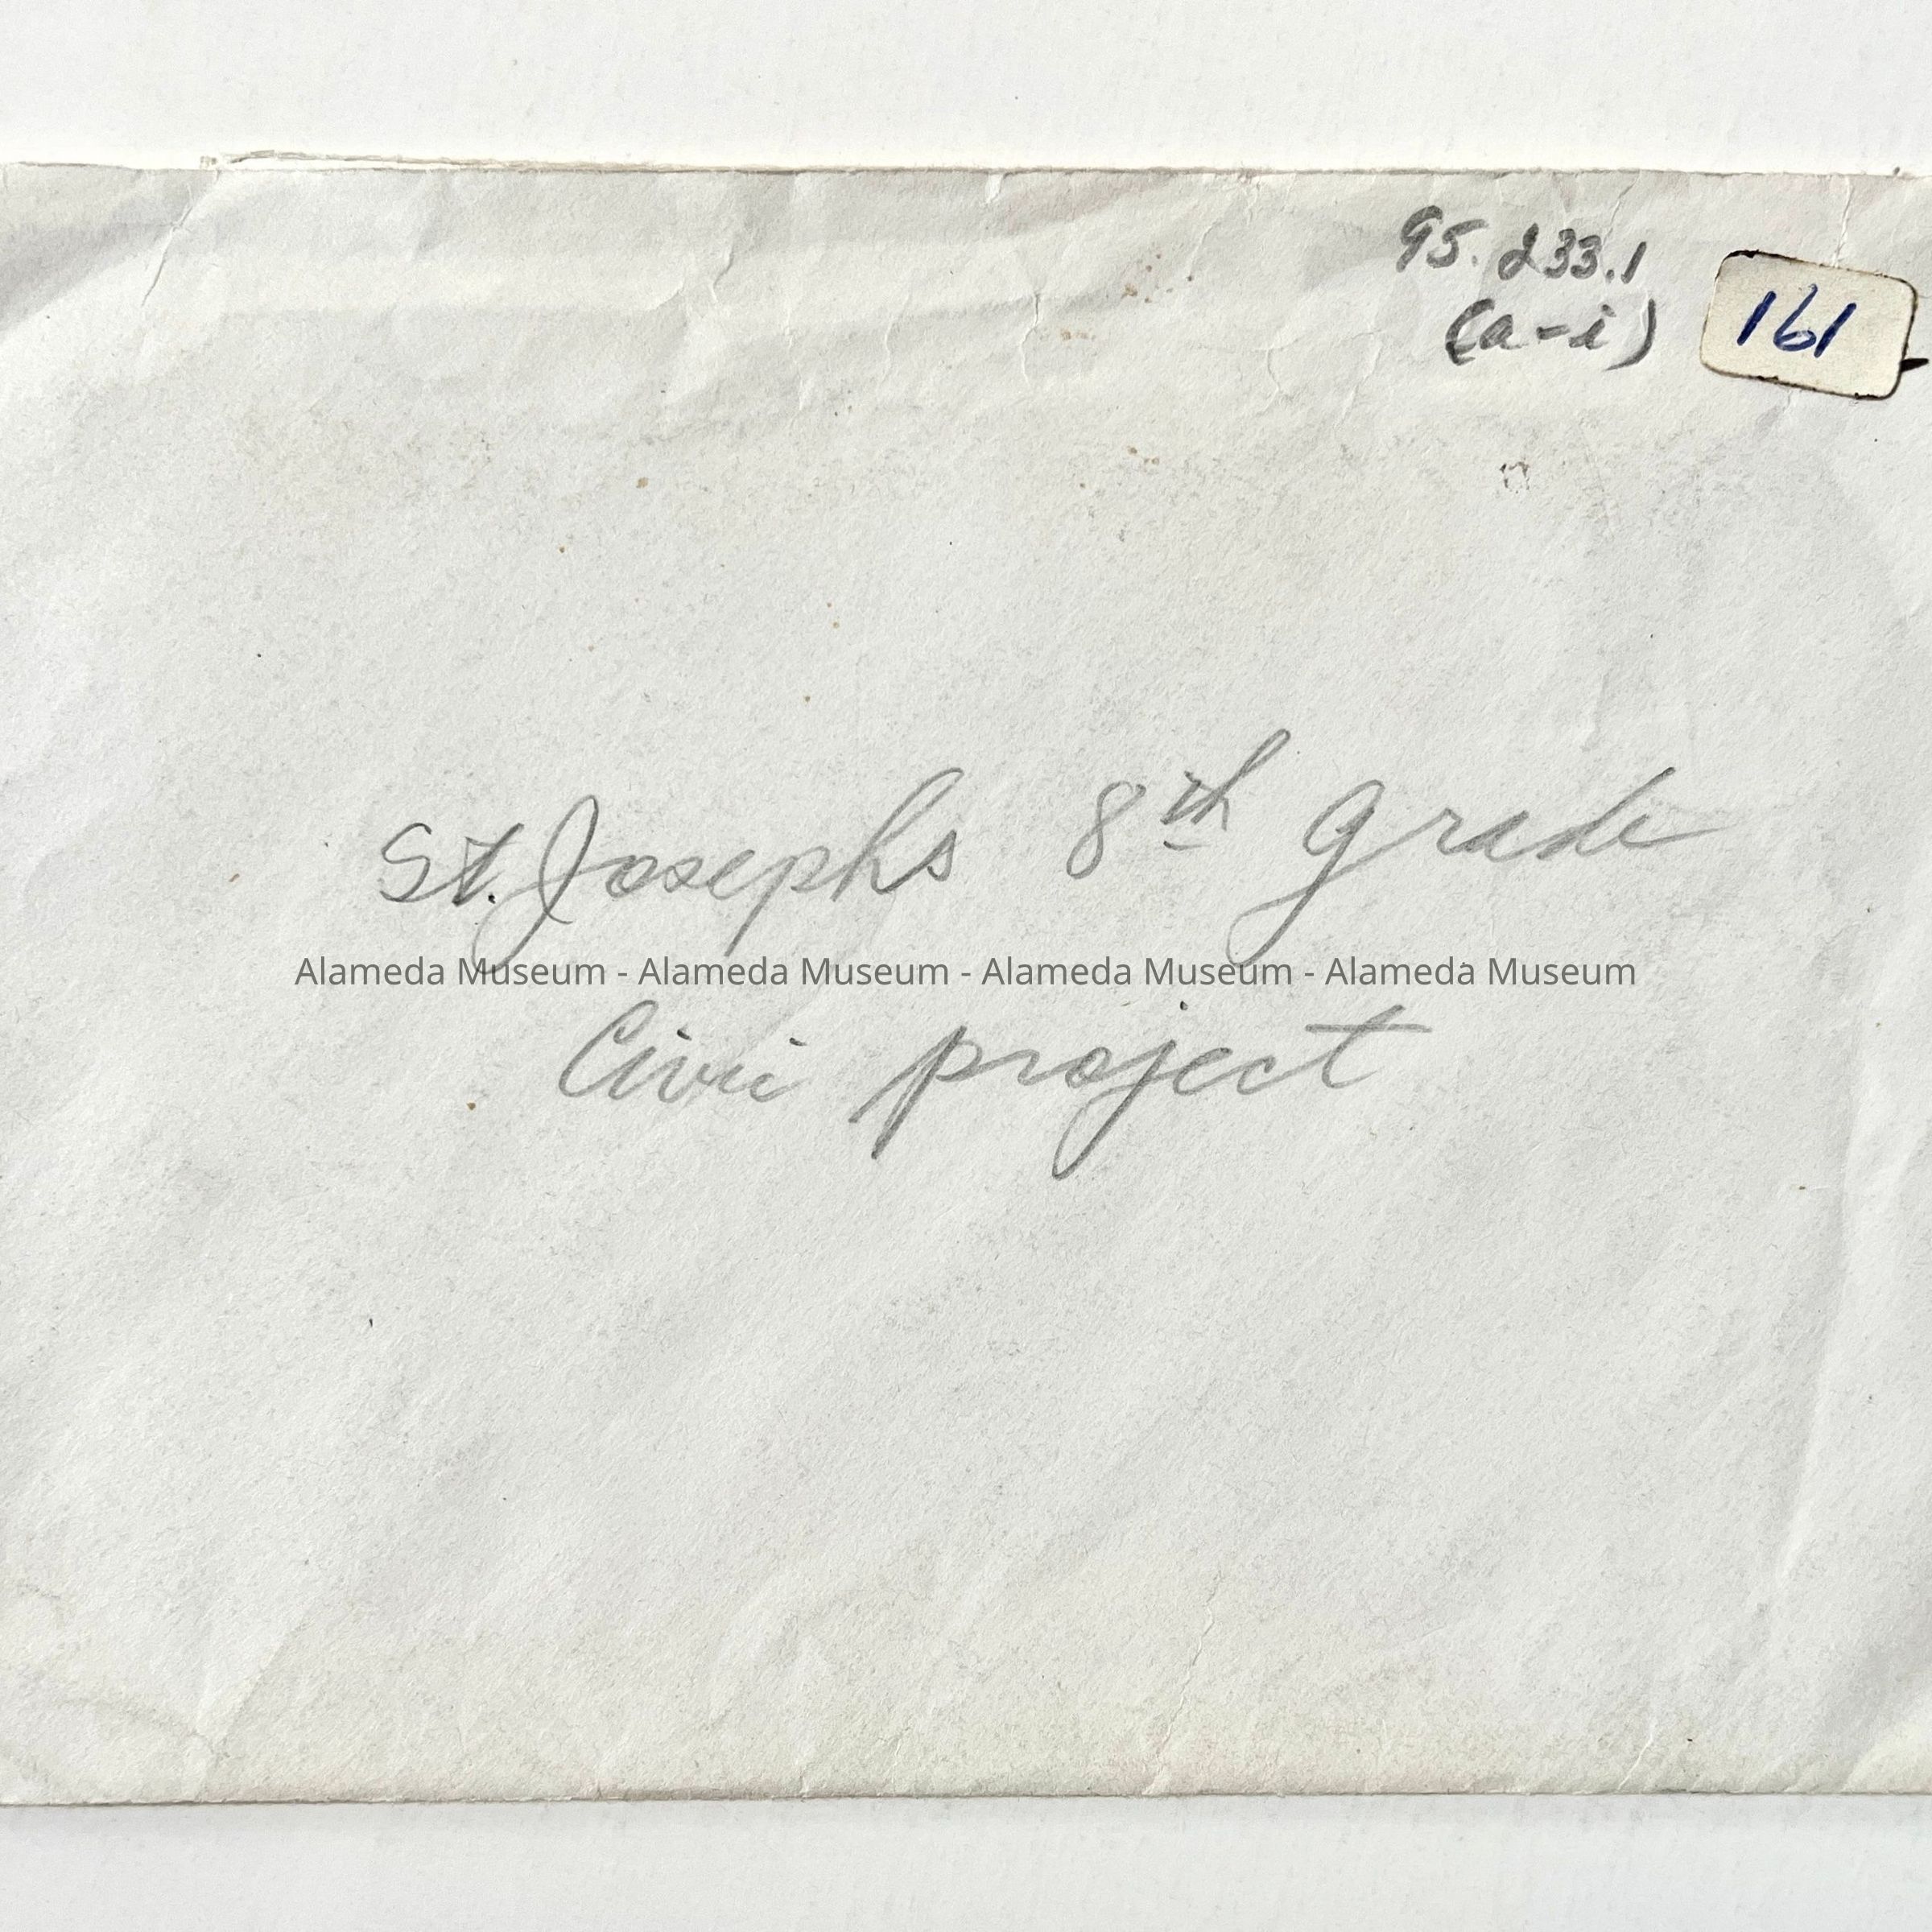 95.233.1
(a-i)
161
St. Josephs 8th grade
Alameda Museum - Alameda Museum - Alameda Museum - Alameda Museum
Civic project